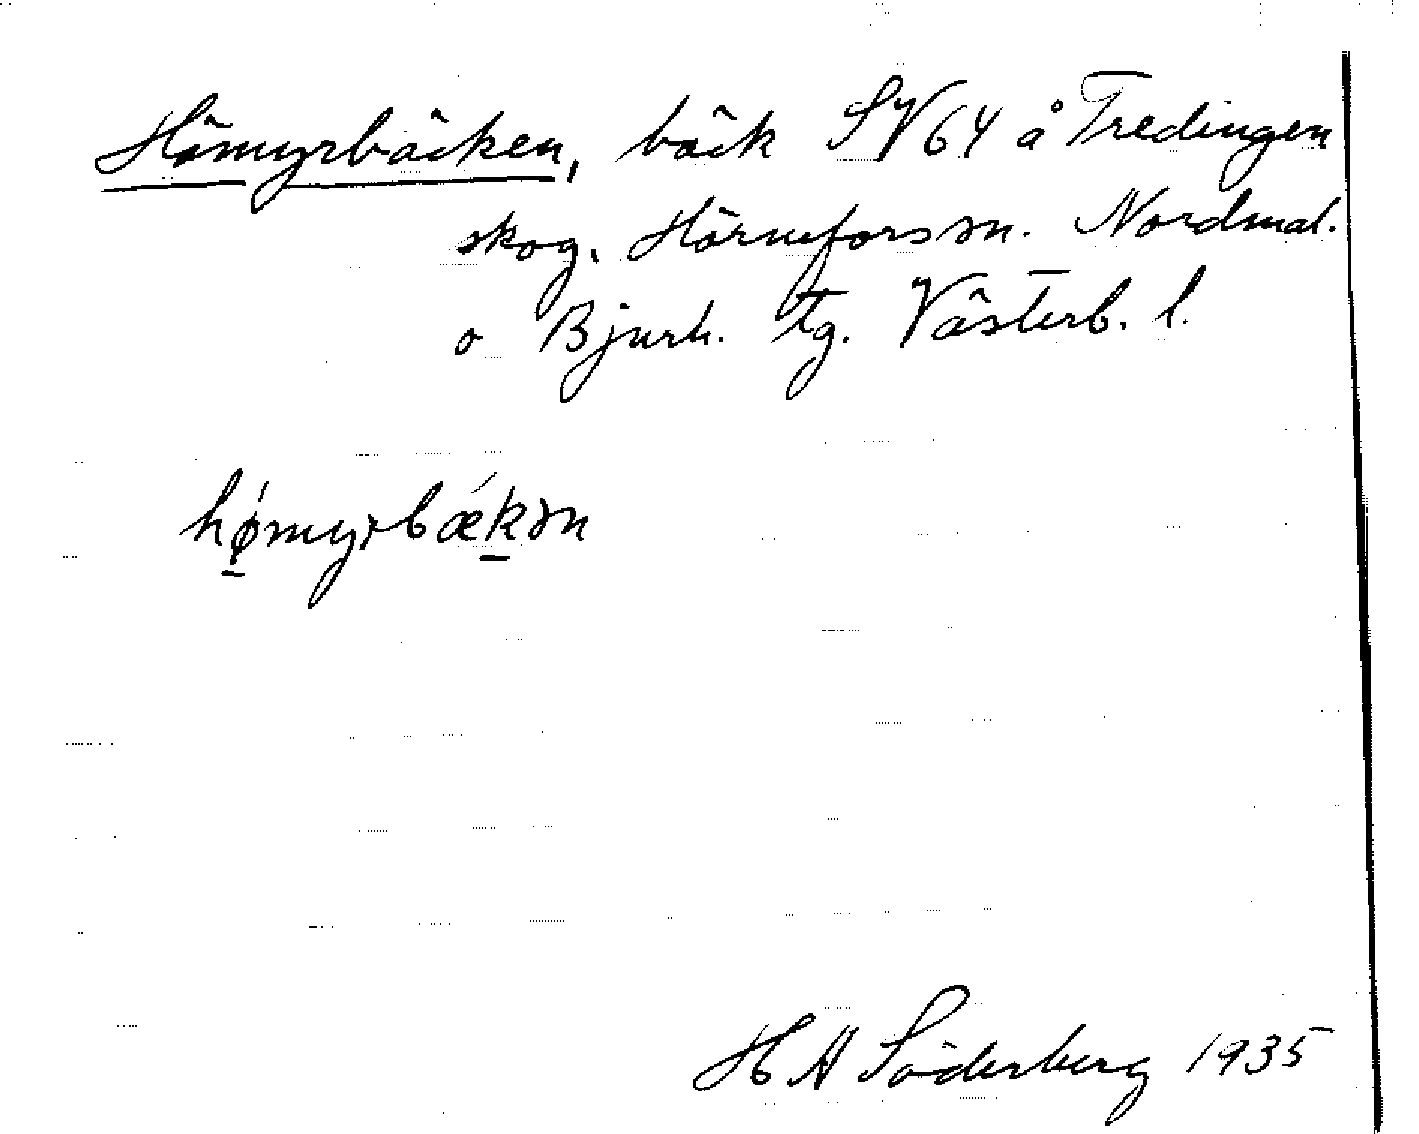 Hömyrbäcken, bäck SV 64 å Tredingen
skog. Hörnefors sn. Nordmal.
o Bjurh. tg. Västerb. l.
hǿmyrbǽkən
H A Söderberg 1935